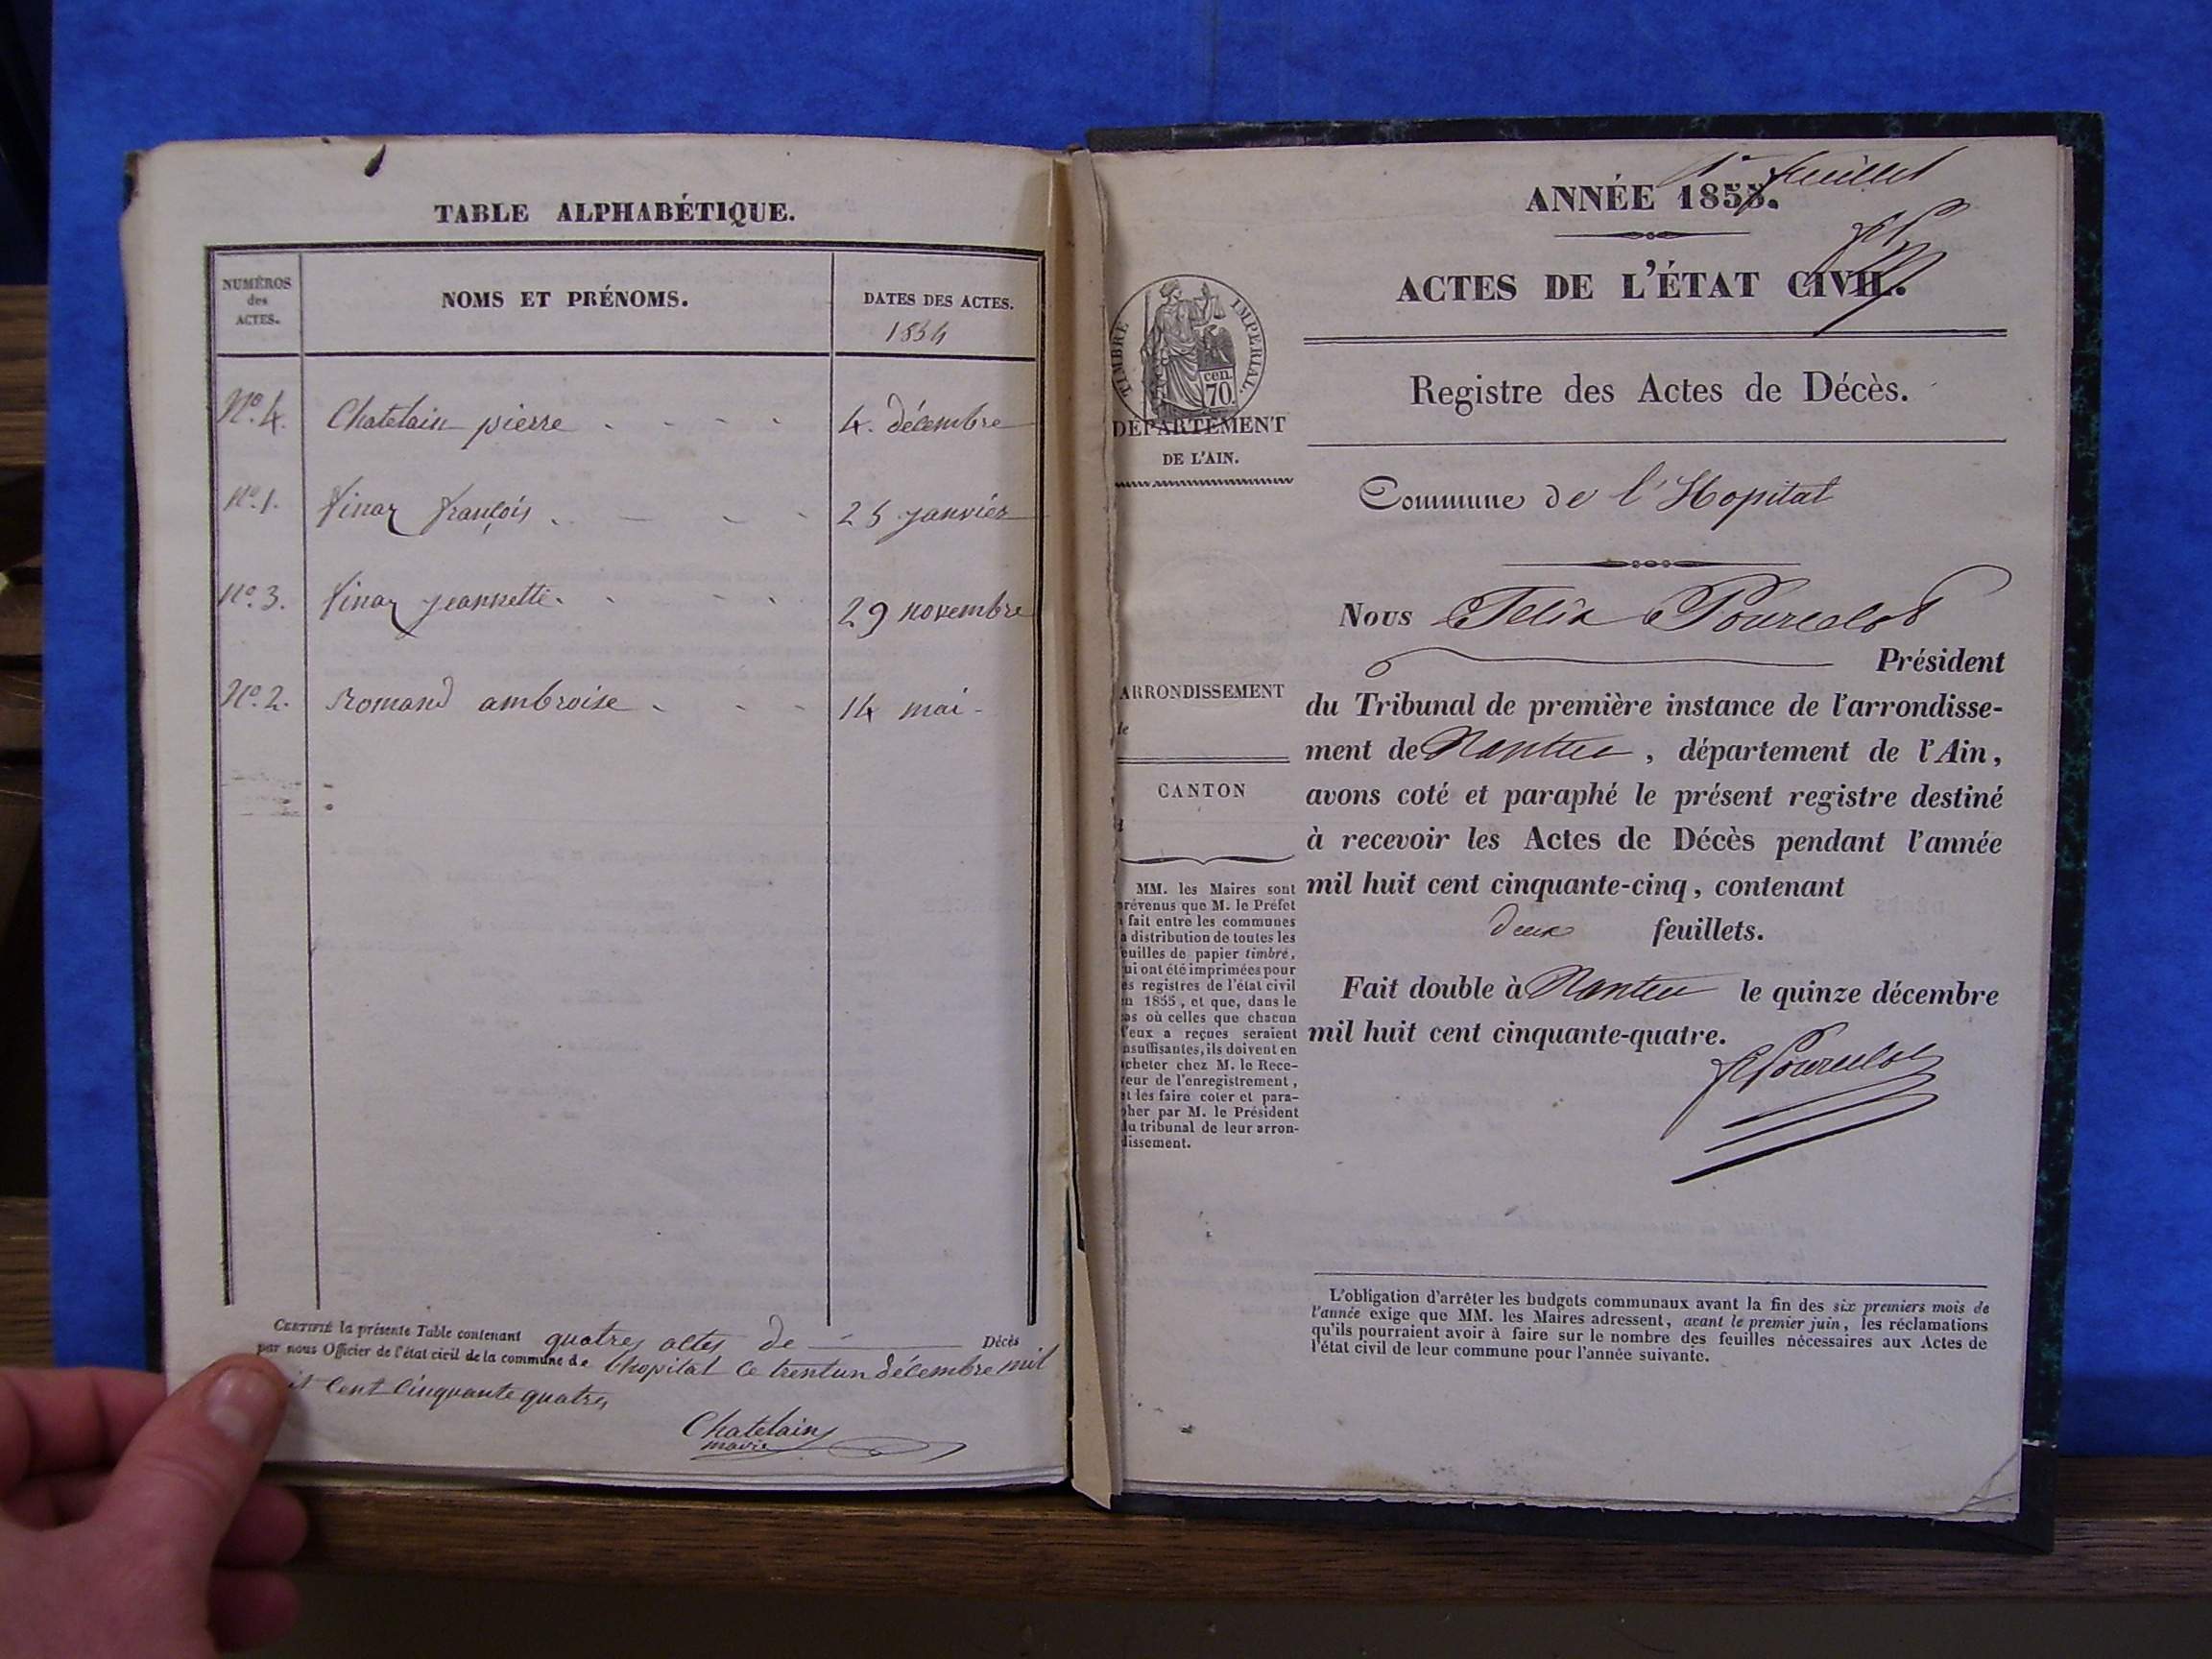 TABLE ALPHABÉTIQUE.
NUMÉROS
des
ACTES.
NOMS ET PRÉNOMS.
DATES DES ACTES.
1854
N.º 4. Chatelain pierre . - - - 4. décembre
N.º 1. finaz françois . - - - 25 janvier
N.º 3. finaz jeannette . . - - 29 novembre
N.º 2. Romand ambroise - - - 14 mai -
CERTIFIÉ la présente Table contenant quatres actes de Décès
par nous Officier de l'état civil de la commune de lhopital ce trentun décembre mil
it cent cinquante quatre
Chatelain
maire
1er feuillet
ANNÉE 1855.
ACTES DE L'ÉTAT CIVIL.
TIMBRE IMPÉRIAL.
cen.
70.
DÉPARTEMENT
DE L'AIN.
Registre des Actes de Décès.
Commune de l'Hopital
Nous Felix Pourcelot
Président
ARRONDISSEMENT
du Tribunal de première instance de l'arrondisse-
ment de Nantua, département de l'Ain,
CANTON
avons coté et paraphé le présent registre destiné
à recevoir les Actes de Décès pendant l'année
mil huit cent cinquante-cinq, contenant
deux feuillets.
Fait double à Nantua le quinze décembre
mil huit cent cinquante-quatre.
FPourcelot
MM. les Maires sont
révenus que M. le Préfet
fait entre les communes
a distribution de toutes les
euilles de papier timbré,
ui ont été imprimées pour
es registres de l'état civil
n 1855, et que, dans le
as où celles que chacun
'eux a reçues seraient
nsuffisantes, ils doivent en
cheter chez M. le Rece-
eur de l'enregistrement,
et les faire coter et para-
pher par M. le Président
du tribunal de leur arron-
dissement.
L'obligation d'arrêter les budgets communaux avant la fin des six premiers mois de
l'année exige que MM. les Maires adressent, avant le premier juin, les réclamations
qu'ils pourraient avoir à faire sur le nombre des feuilles nécessaires aux Actes de
l'état civil de leur commune pour l'année suivante.